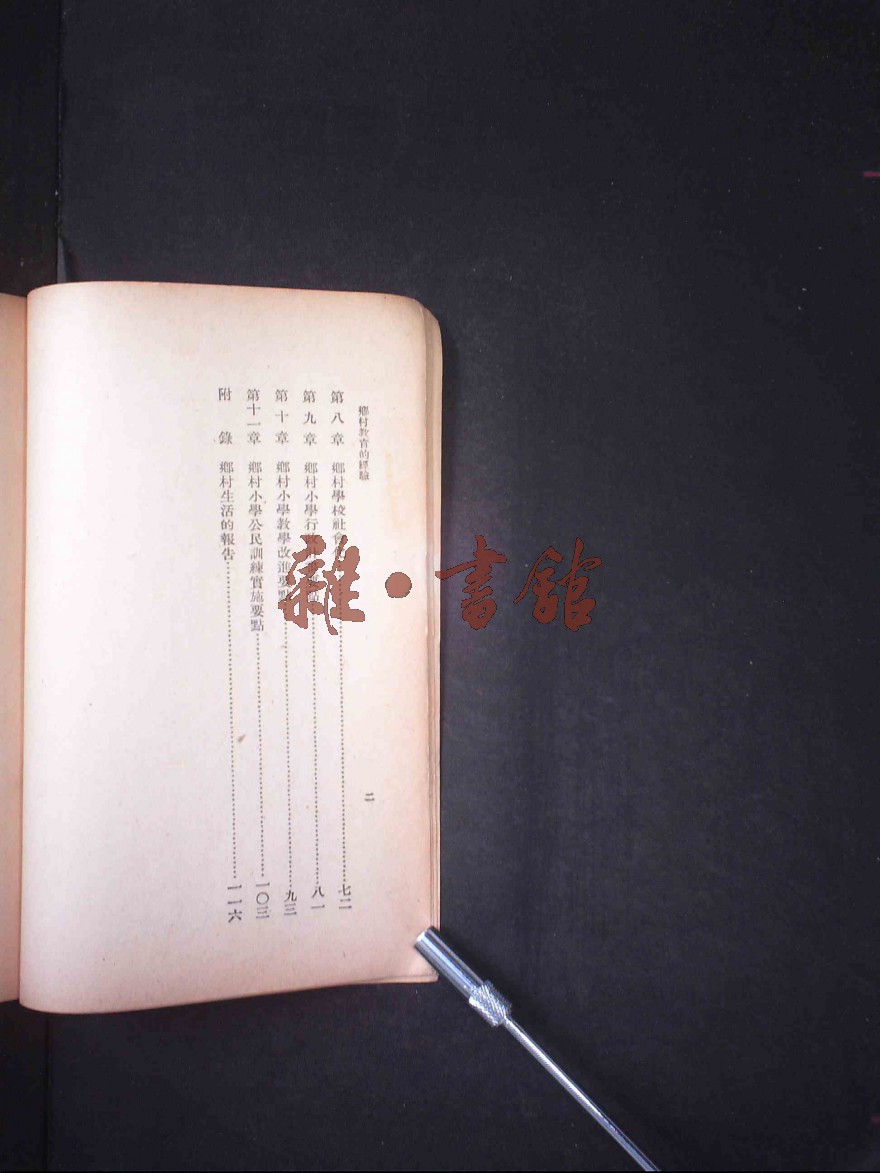 鄉村教育的經驗
第八章 鄉村學校社會………七二
第九章 鄉村小學行………八一
第十章 鄉村小學教學改進要點………九三
第十一章 鄉村小學公民訓練實施要點………一〇三
附錄 鄉村生活的報告………一一六
二
雜·書館